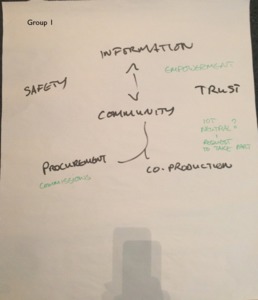 Group 1
INFORMATION
EMPOWERMENT
SAFETY
TRUST
COMMUNITY
NEUTRAL?
PROCUREMENT
TO TAKE PART
COMMISSIONING
CO-PRODUCTION